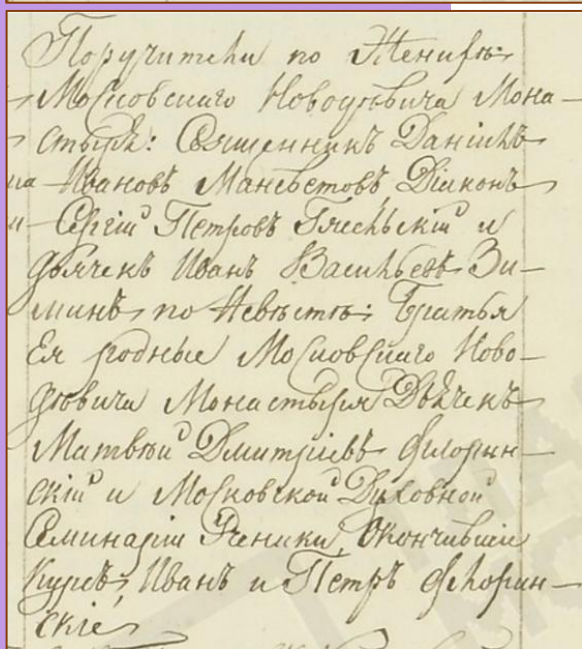 Поручители по Женихѣ:
Московскаго Новодѣвича Мона-
стыря: Священникъ Даніилъ
Ивановъ Мансветовъ Діаконъ
Сергій Петровъ и
дьячекъ Иванъ Васильевъ Зи-
минъ, по Невѣстѣ: Братья
Ея родные Московскаго Ново-
дѣвича Монастыря Дьячекъ
Матвѣй Дмитріевъ Флорин-
скій и Московской Духовной
Семинаріи Ученики Окончившіе
Курсъ, Иванъ и Петръ Флорин-
скіе,